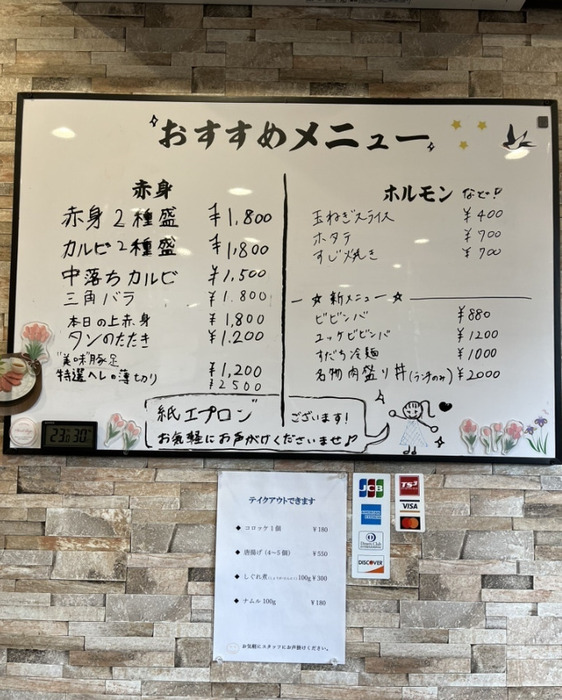 おすすめメニュー
赤身
赤身2種盛 ¥1,800
カルビ2種盛 ¥1,800
中落ちカルビ ¥1,500
三角バラ ¥1.800
本日の上赤身 ¥1,800
タンのたたき ¥1.200
"美味"豚足 ¥1,200
特選ヘレの薄切り ¥2500
ホルモン など!!
玉ねぎスライス ¥400
ホタテ ¥700
すじ焼き ¥700
☆新メニュー☆
ビビンバ ¥880
ユッケビビンバ ¥1200
すだち冷麺 ¥1000
名物肉盛り丼(ランチのみ) ¥2000
紙エプロン ございます!
お気軽にお声がけくださいませ♪
テイクアウトできます
◆ コロッケ1個 ¥180
◆ 唐揚げ(4〜5個) ¥550
◆ しぐれ煮 100g ¥300
◆ ナムル 100g ¥180
お気軽にスタッフにお声掛けください。
JCB
AMERICAN EXPRESS
Diners Club INTERNATIONAL
DISCOVER
TS3
VISA
MasterCard